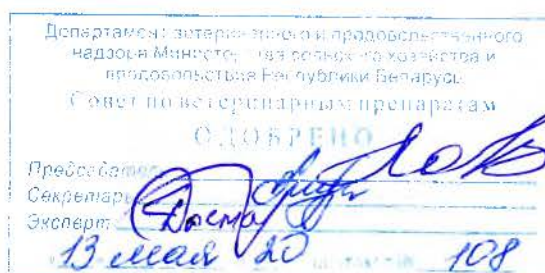 Департамент ветеринарного и продовольственного
надзора Министерства сельского хозяйства и
продовольствия Республики Беларусь
Совет по ветеринарным препаратам
ОДОБРЕНО
Председатель
Секретарь
Эксперт
13 мая 20 108